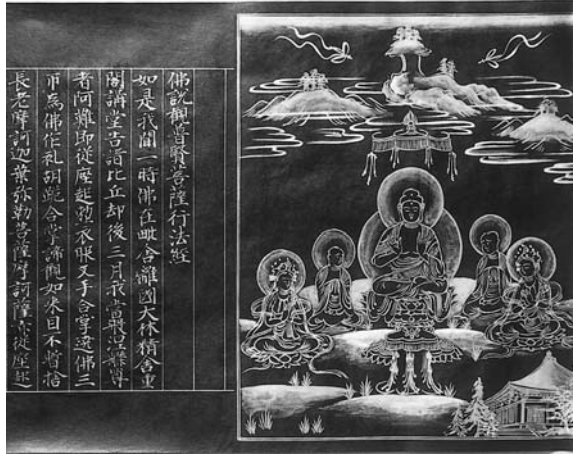 佛說觀普賢菩薩行法經
如是我聞一時佛在毗舍離國大林精舍重
閣講堂告諸比丘却後三月我當般涅槃尊
者阿難即從座起整衣服叉手合掌遶佛三
帀為佛作礼胡跪合掌諦觀如來目不暫捨
長老摩訶迦葉弥勒菩薩摩訶薩亦從座起